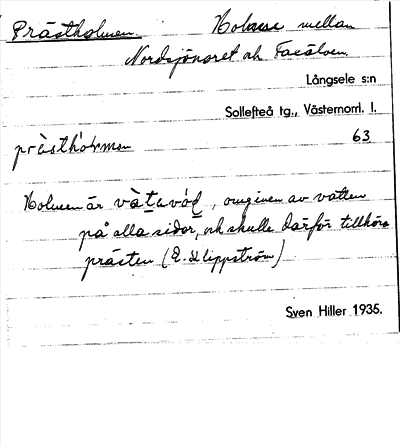 Prästholmen. Holme mellan
Nordsjönoret och Faxälven.
Långsele s:n
Sollefteå tg., Västernorrl. l.
prä̀sthoḷmen 63
Holmen är vàtavól, omgiven av vatten
på alla sidor, och skulle därför tillhöra
prästen (E. Klippström)
Sven Hiller 1935.